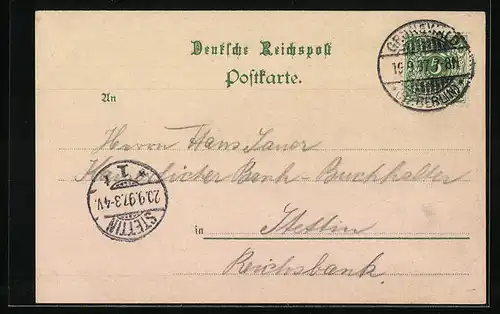 Deutsche Reichspost
Postkarte.
An
GRUNEWALD
19.9.97. 8N
(BZ. BERLIN)
5
Herrn Hans Sauer
Kaiserlicher Bank-Buchhalter
STETTIN
20.9.97.3-4V.
* 1 i
in Stettin
Reichsbank